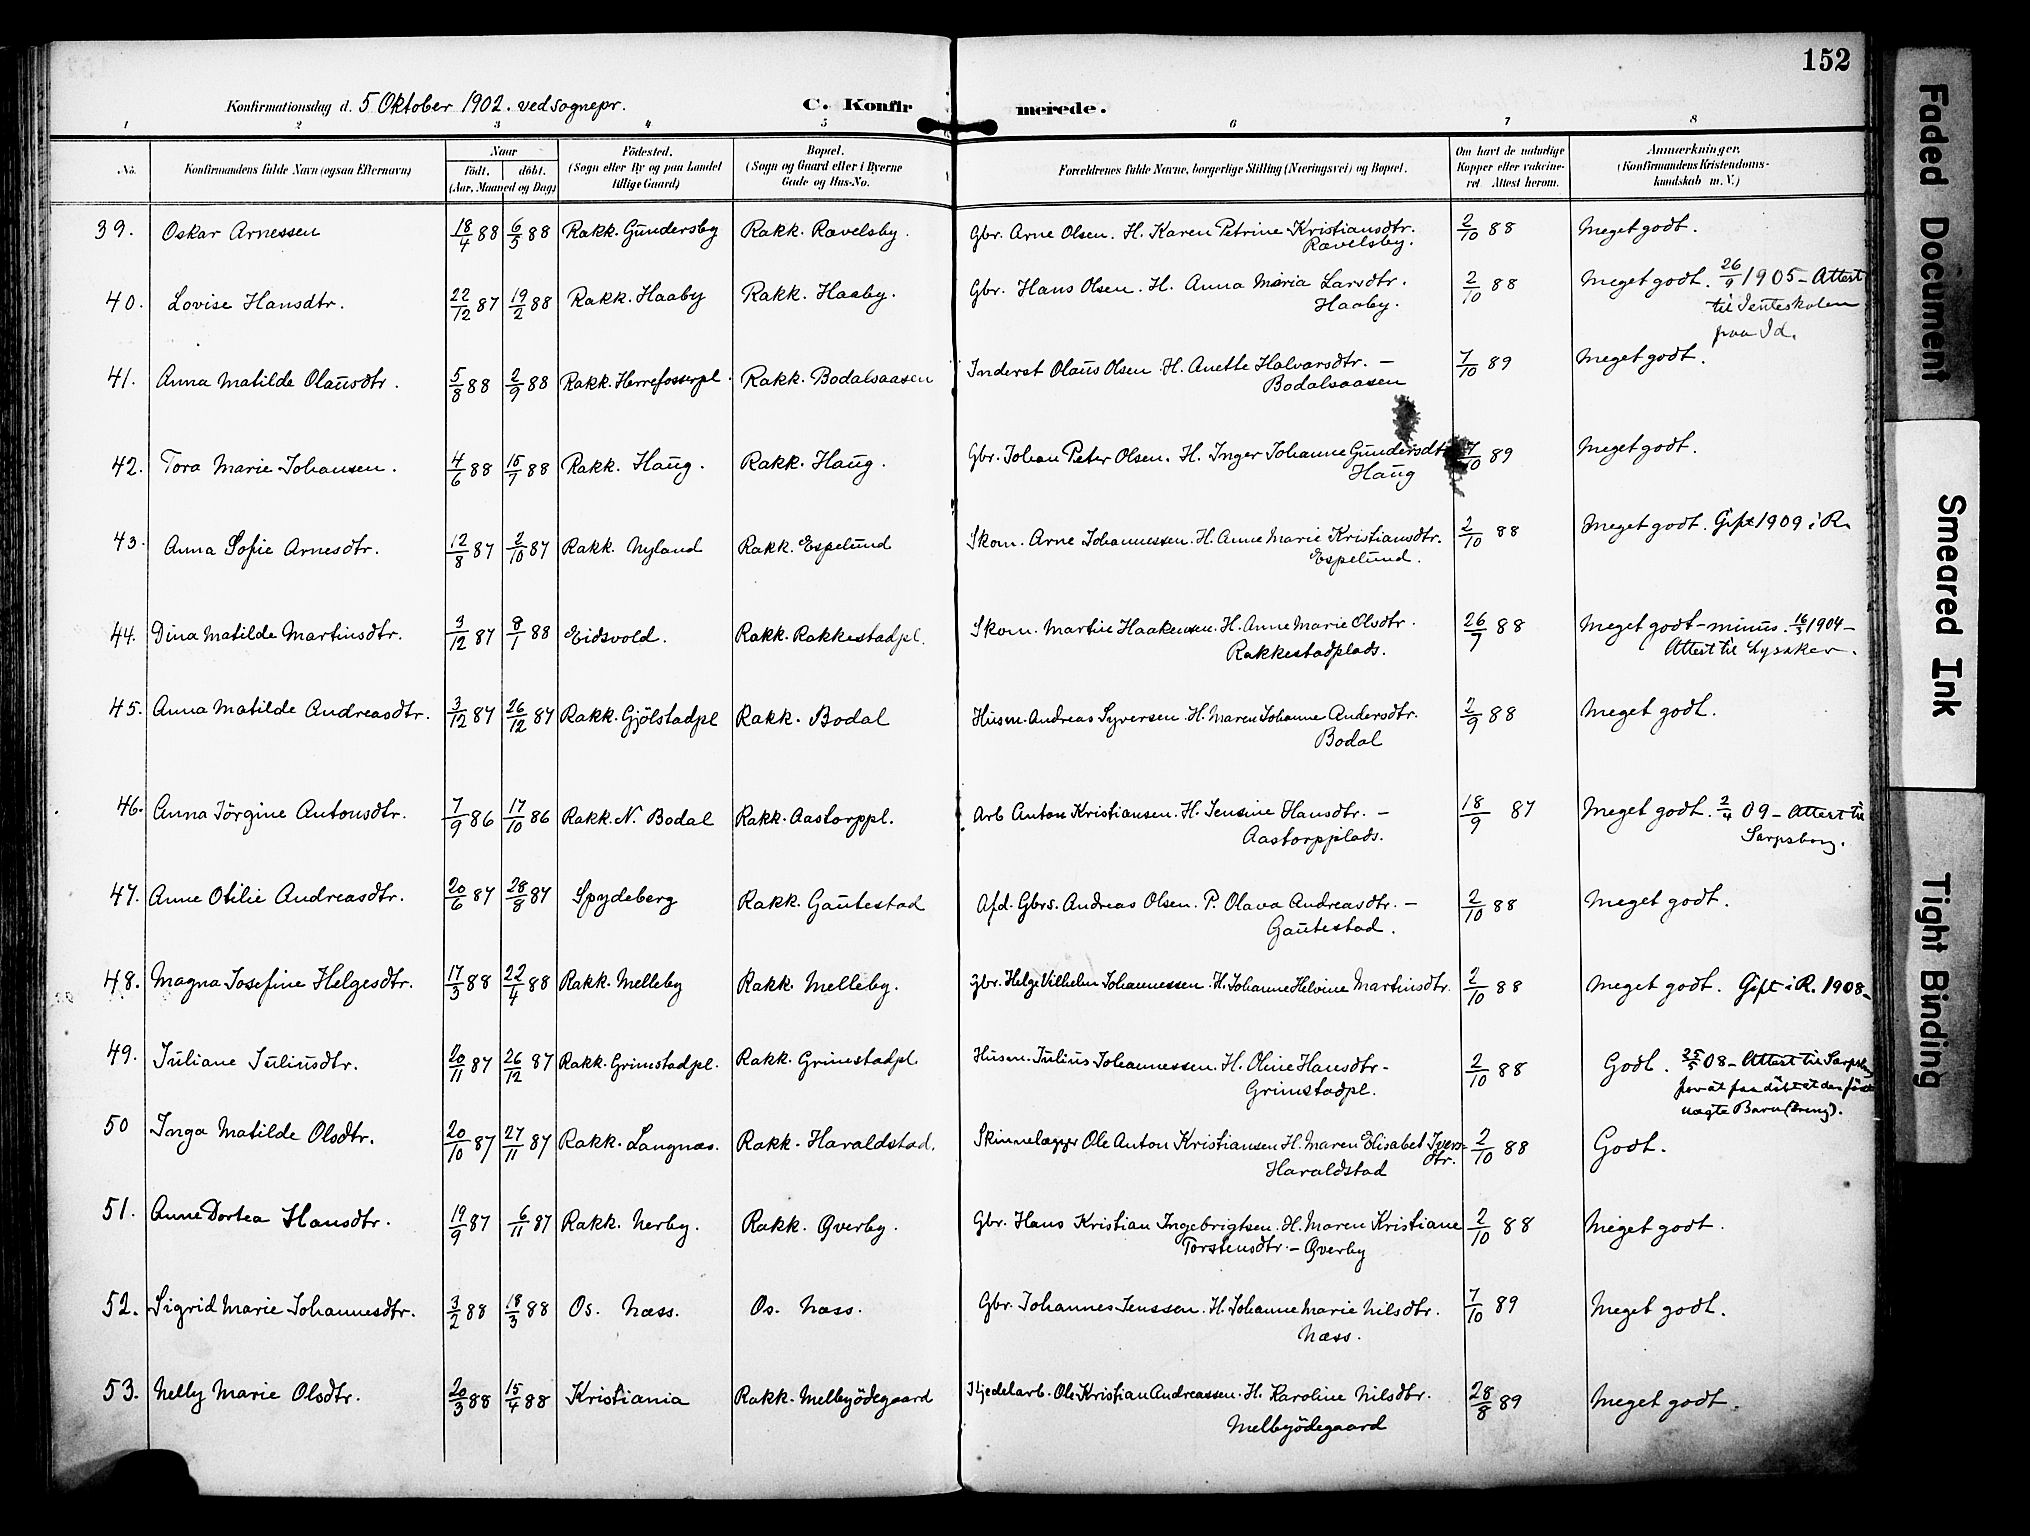 152
Konfirmationsdag d. 5 Oktober 1902. ved sognepr. C. Konfirmerede.
1 2 3 4 5 6 7 8
No. Konfirmandens fulde Navn (ogsaa Efternavn) Naar Födt, döbt. (Aar, Maaned og Dag) Födested. (Sogn eller By og paa Landet tillige Gaard) Bopæl. (Sogn og Gaard eller i Byerne Gade og Hus-No. Forældrenes fulde Navne, borgerlige Stilling (Næringsvei) og Bopæl. Om havt de naturlige Kopper eller vakcineret. Attest herom. Anmærkninger. (Konfirmandens Kristendomskundskab m. V.)
39. Oskar Arnessen 18/4 88 6/5 88 Rakk. Gundersby Rakk. Ravelsby. Gbr. Arne Olsen. H. Karen Petrine Kristiansdtr. Ravelsby. 2/10 88 Meget godt.
40. Lovise Hansdtr. 22/12 87 19/2 88 Rakk. Haaby Rakk. Haaby. Gbr. Hans Olsen. H. Anna Maria Larsdtr. Haaby. 2/10 88 Meget godt. 26/9 1905 - Attest til Jenteskolen paa Id.
41. Anna Matilde Olausdtr. 5/8 88 2/9 88 Rakk. Herrefosserpl. Rakk. Bodalsaasen Inderst Olaus Olsen. H. Anette Halvorsdtr. - Bodalsaasen 7/10 89 Meget godt.
42. Tora Marie Johansen. 4/6 88 15/7 88 Rakk. Haug. Rakk. Haug. Gbr. Johan Peter Olsen. H. Inger Johanne Gundersdtr Haug 7/10 89 Meget godt.
43. Anna Sofie Arnesdtr. 12/8 87 2/10 87 Rakk. Nyland Rakk. Espelund Skom. Arne Johannessen. H. Anne Marie Kristiansdtr. Espelund. 2/10 88 Meget godt. Gift 1909 i R.
44. Dina Matilde Martinsdtr. 3/12 87 8/1 88 Eidsvold. Rakk. Rakkestadpl. Skom. Martin Haakensen. H. Anne Marie Olsdtr. Rakkestadplads. 26/7 88 Meget godt - minus. 16/3 1904 - Attest til Lysaker.
45. Anna Matilde Andreasdtr. 3/12 87 26/12 87 Rakk. Gjölstadpl Rakk. Bodal Husm. Andreas Syversen. H. Maren Johanne Andersdtr. Bodal 2/9 88 Meget godt.
46. Anna Jörgine Antonsdtr. 7/9 86 17/10 86 Rakk. N. Bodal Rakk. Aastorppl. Arb Anton Kristiansen. H. Jensine Hansdtr. - Aastorpplads. 18/9 87 Meget godt. 2/4 09 - Attest til Sarpsborg.
47. Anne Otilie Andreasdtr. 20/6 87 28/8 87 Spydeberg Rakk. Gautestad Afd. Gbrs. Andreas Olsen. P. Olava Andreasdtr. - Gautestad. 2/10 88 Meget godt.
48. Magna Josefine Helgesdtr. 17/3 88 22/4 88 Rakk. Melleby Rakk. Melleby. Gbr. Helge Vilhelm Johannessen. H. Johanne Helvine Martinsdtr. 2/10 88 Meget godt. Gift i R. 1908 -
49. Juliane Juliusdtr. 20/11 87 26/12 87 Rakk. Grimstadpl. Rakk. Grimstadpl. Husm. Julius Johannessen. H. Oline Hansdtr - Grimstadpl. 2/10 88 Godt. 25/5 08 - Attest til Sarpsborg for at faa döbt et der födt uægte Barn (Dreng).
50 Inga Matilde Olsdtr. 20/10 87 27/11 87 Rakk. Langnæs. Rakk. Haraldstad. Skinnelægger Ole Anton Kristiansen H. Maren Elisabet Iversdtr. Haraldstad 2/10 88 Godt.
51. Anne Dortea Hansdtr. 19/9 87 6/11 87 Rakk. Nerby. Rakk. Qverby. Gbr. Hans Kristian Ingebrigtsen. H. Maren Kristiane Torstensdtr. - Qverby 2/10 88 Meget godt.
52. Sigrid Marie Johannesdtr. 3/2 88 18/3 88 Os. Næss. Os. Næss. Gbr. Johannes Jenssen. H. Johanne Marie Nilsdtr. Næss. 7/10 89 Meget godt.
53. Nelly Marie Olsdtr. 20/3 88 15/4 88 Kristiania Rakk. Melbyödegaard Kjedelarb. Ole Kristian Andreassen. H. Karoline Nilsdtr. Melbyödegaard 28/8 89 Meget godt.
Faded Document
Smeared Ink
Tight Binding